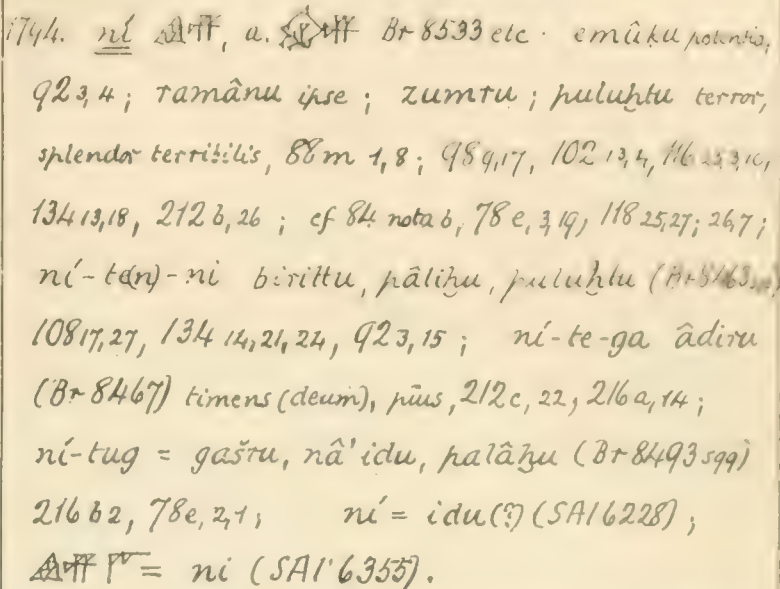 1794. ní 𒉎, a. Br 8533 etc. emûḳu potentis,
92 3,4; ramânu ipse; zumru; puluḫtu terror,
splendor terribilis, 88m 1,8; 98 9,17, 102 13,4, 116
134 13,18, 212 b, 26; cf 84 nota b, 78 e, 3,19, 118 25,27; 26,7;
ní-te(n)-ni birittu, pâliḫu, puluḫtu
108 17,27, 134 14,21,24, 92 3,15; ní-te-ga âdiru
(Br 8467) timens (deum), pius, 212 c, 22, 216 a, 14;
ní-tug = gašru, nâ'idu, palâḫu (Br 8493 sqq)
216 b 2, 78 e, 2,1; ní = idu(?) (SAI 6228);
= ni (SAI 6355).